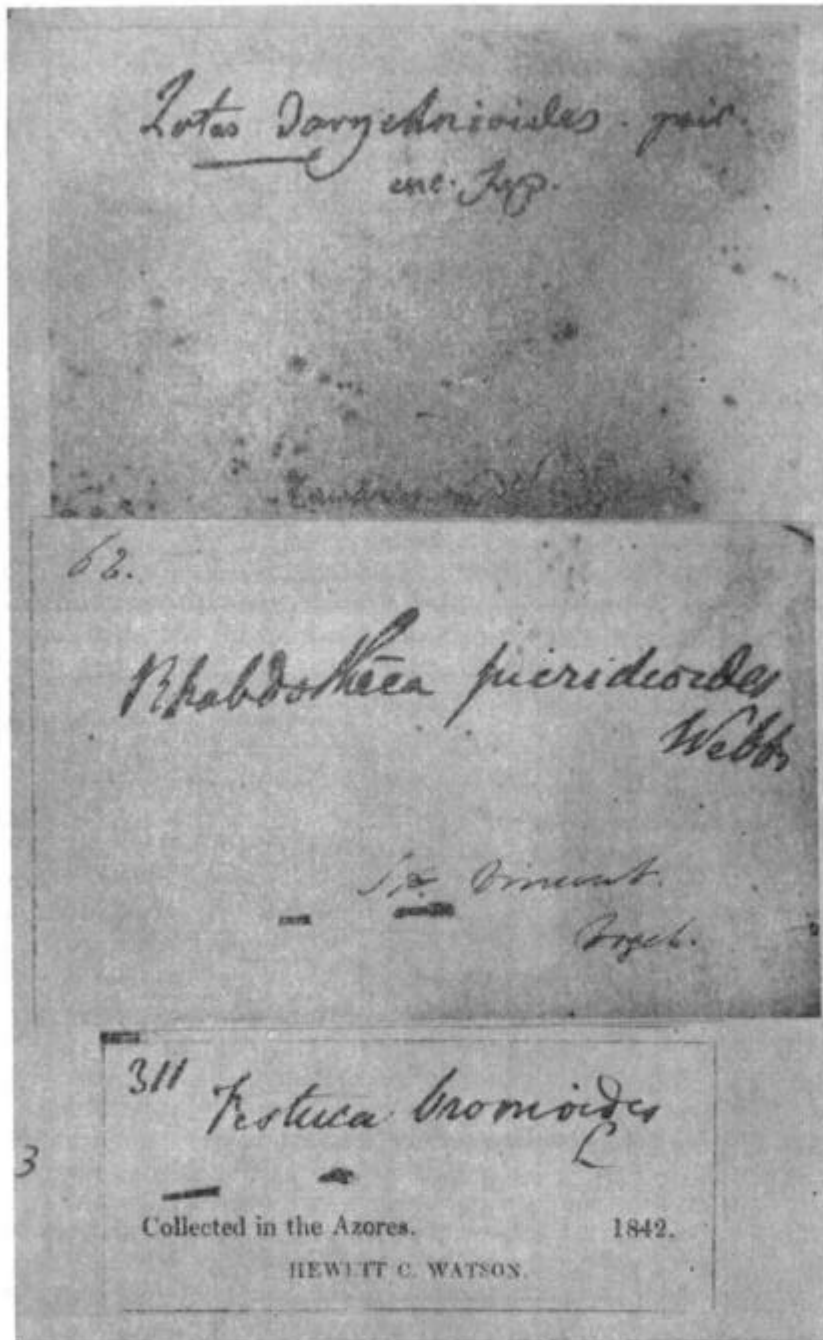 Lotus Dorychnioides. poir.
enc. Sup.
62.
Rhabdotheca picridioides
Webb
St. Vincent.
Vogel.
311 Festuca bromoides
L
3
Collected in the Azores. 1842.
HEWETT C. WATSON.